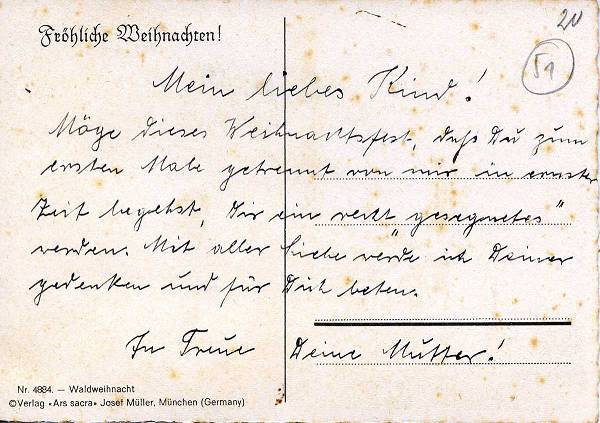 Fröhliche Weihnachten!
20
51
Mein liebes Kind!
Möge dieses Weihnachtsfest, daß Du zum
ersten Male getrennt von mir in ernster
Zeit begehst, Dir ein recht „gesegnetes"
werden. Mit aller Liebe werde ich Deiner
gedenken und für Dich beten.
In Treue Deine Mutter!
Nr. 4884. — Waldweihnacht
©Verlag «Ars sacra» Josef Müller, München (Germany)